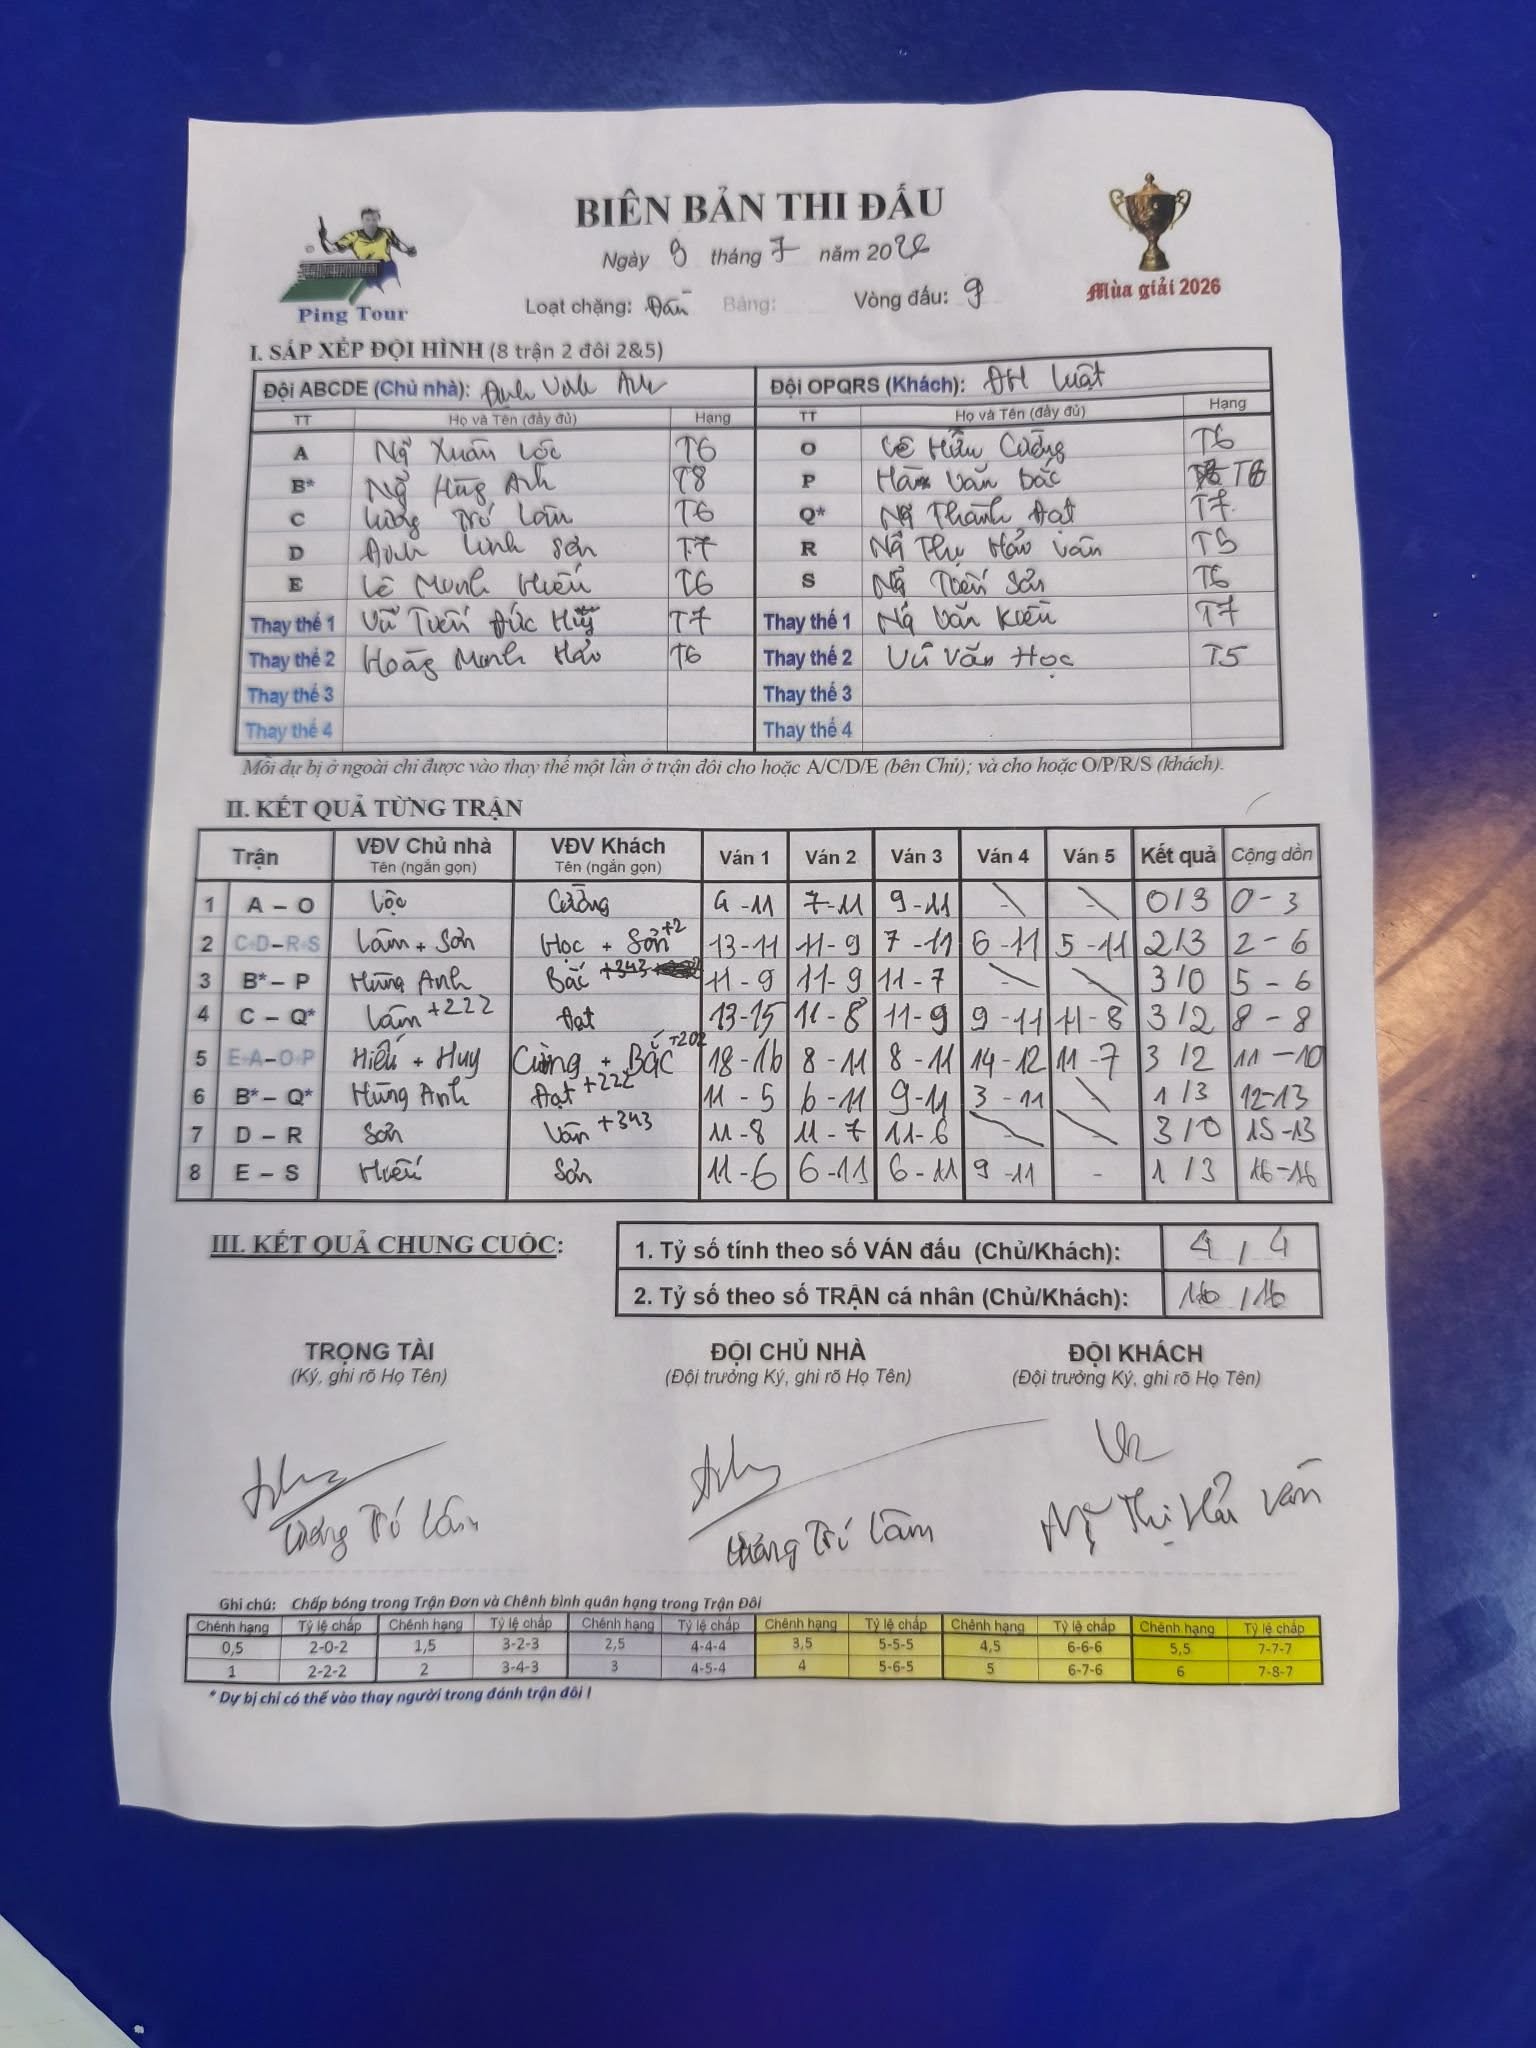 BIÊN BẢN THI ĐẤU
Ngày 9 tháng 7 năm 2026
Loạt chặng: Bảng: Vòng đấu: 9
Ping Tour
Mùa giải 2026
I. SẮP XẾP ĐỘI HÌNH (8 trận 2 đôi 2&5)
Đội ABCDE (Chủ nhà): Đội OPQRS (Khách): ĐH Luật
TT Họ và Tên (đầy đủ) Hạng TT Họ và Tên (đầy đủ) Hạng
A Ng Xuân Lộc T6 O Lê Hữu Cường T6
B* Ng Hùng Anh T8 P Văn Bắc T6
C Lương Trí Lâm T6 Q* Ng Thành Đạt T7
D Linh Sơn T7 R Ng Thị Hải Vân T5
E Lê Minh Hiếu T6 S Ng Tiến Sơn T6
Thay thế 1 Vũ Tiến Đức Huy T7 Thay thế 1 Ng Văn Kiên T7
Thay thế 2 Hoàng Minh Hải T6 Thay thế 2 Vũ Văn Học T5
Thay thế 3 Thay thế 3
Thay thế 4 Thay thế 4
Mỗi dự bị ở ngoài chỉ được vào thay thế một lần ở trận đôi cho hoặc A/C/D/E (bên Chủ); và cho hoặc O/P/R/S (khách).
II. KẾT QUẢ TỪNG TRẬN
Trận VĐV Chủ nhà Tên (ngắn gọn) VĐV Khách Tên (ngắn gọn) Ván 1 Ván 2 Ván 3 Ván 4 Ván 5 Kết quả Cộng dồn
1 A – O Lộc Cường 4 -11 7-11 9-11 - - 0/3 0-3
2 C+D–R+S Lâm + Sơn Học + Sơn +2 13-11 11-9 7-11 6-11 5-11 2/3 2-6
3 B* – P Hùng Anh Bắc +343 11-9 11-9 11-7 - - 3/0 5-6
4 C – Q* Lâm +222 Đạt 13-15 11-8 11-9 9-11 11-8 3/2 8-8
5 E+A–O+P Hiếu + Huy Cường + Bắc +202 18-16 8-11 8-11 14-12 11-7 3/2 11-10
6 B* – Q* Hùng Anh Đạt +222 11-5 6-11 9-11 3-11 1/3 12-13
7 D – R Sơn Vân +343 11-8 11-7 11-6 - - 3/0 15-13
8 E – S Hiếu Sơn 11-6 6-11 6-11 9-11 - 1/3 16-16
III. KẾT QUẢ CHUNG CUỘC:
1. Tỷ số tính theo số VÁN đấu (Chủ/Khách): 4 / 4
2. Tỷ số theo số TRẬN cá nhân (Chủ/Khách): 16 / 16
TRỌNG TÀI ĐỘI CHỦ NHÀ ĐỘI KHÁCH
(Ký, ghi rõ Họ Tên) (Đội trưởng Ký, ghi rõ Họ Tên) (Đội trưởng Ký, ghi rõ Họ Tên)
Lương Trí Lâm Lương Trí Lâm Ng Thị Hải Vân
Ghi chú: Chấp bóng trong Trận Đơn và Chênh bình quân hạng trong Trận Đôi
Chênh hạng Tỷ lệ chấp Chênh hạng Tỷ lệ chấp Chênh hạng Tỷ lệ chấp Chênh hạng Tỷ lệ chấp Chênh hạng Tỷ lệ chấp Chênh hạng Tỷ lệ chấp
0,5 2-0-2 1,5 3-2-3 2,5 4-4-4 3,5 5-5-5 4,5 6-6-6 5,5 7-7-7
1 2-2-2 2 3-4-3 3 4-5-4 4 5-6-5 5 6-7-6 6 7-8-7
* Dự bị chỉ có thể vào thay người trong đánh trận đôi !